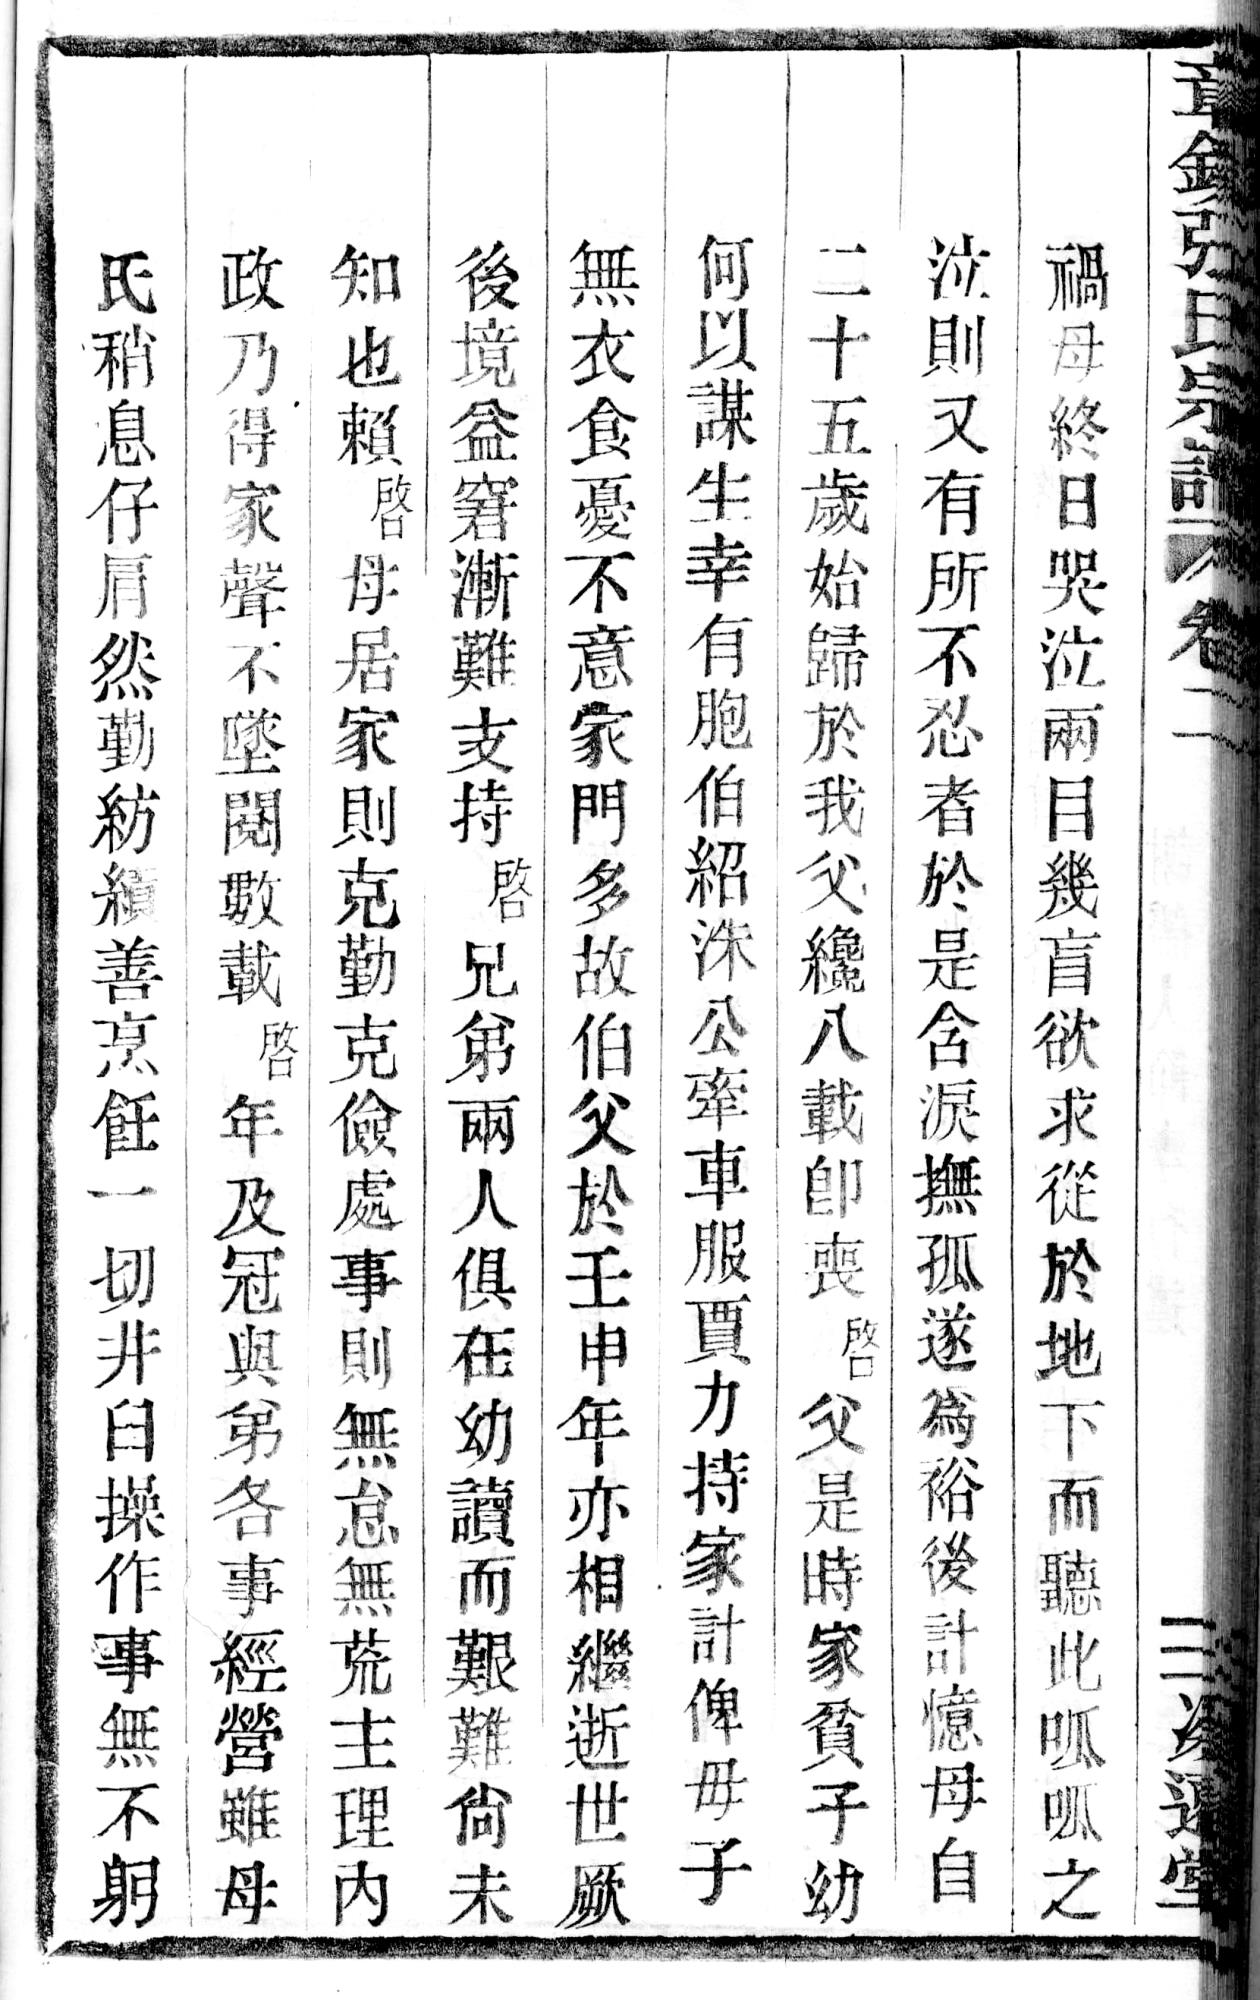 章錦張氏宗譜 卷二
禍母終日哭泣兩目幾盲欲求從於地下而聽此呱呱之
泣則又有所不忍者於是含淚撫孤遂為裕後計憶母自
二十五歲始歸於我父纔八載卽喪啓父是時家貧子幼
何以謀生幸有胞伯紹洙公牽車服賈力持家計俾毋子
無衣食憂不意家門多故伯父於壬申年亦相繼逝世厥
後境益窘漸難支持啓兄弟兩人俱在幼讀而艱難尙未
知也賴啓母居家則克勤克儉處事則無怠無荒主理內
政乃得家聲不墜閱數載啓年及冠與弟各事經營雖母
氏稍息仔肩然勤紡績善烹飪一切井臼操作事無不躬